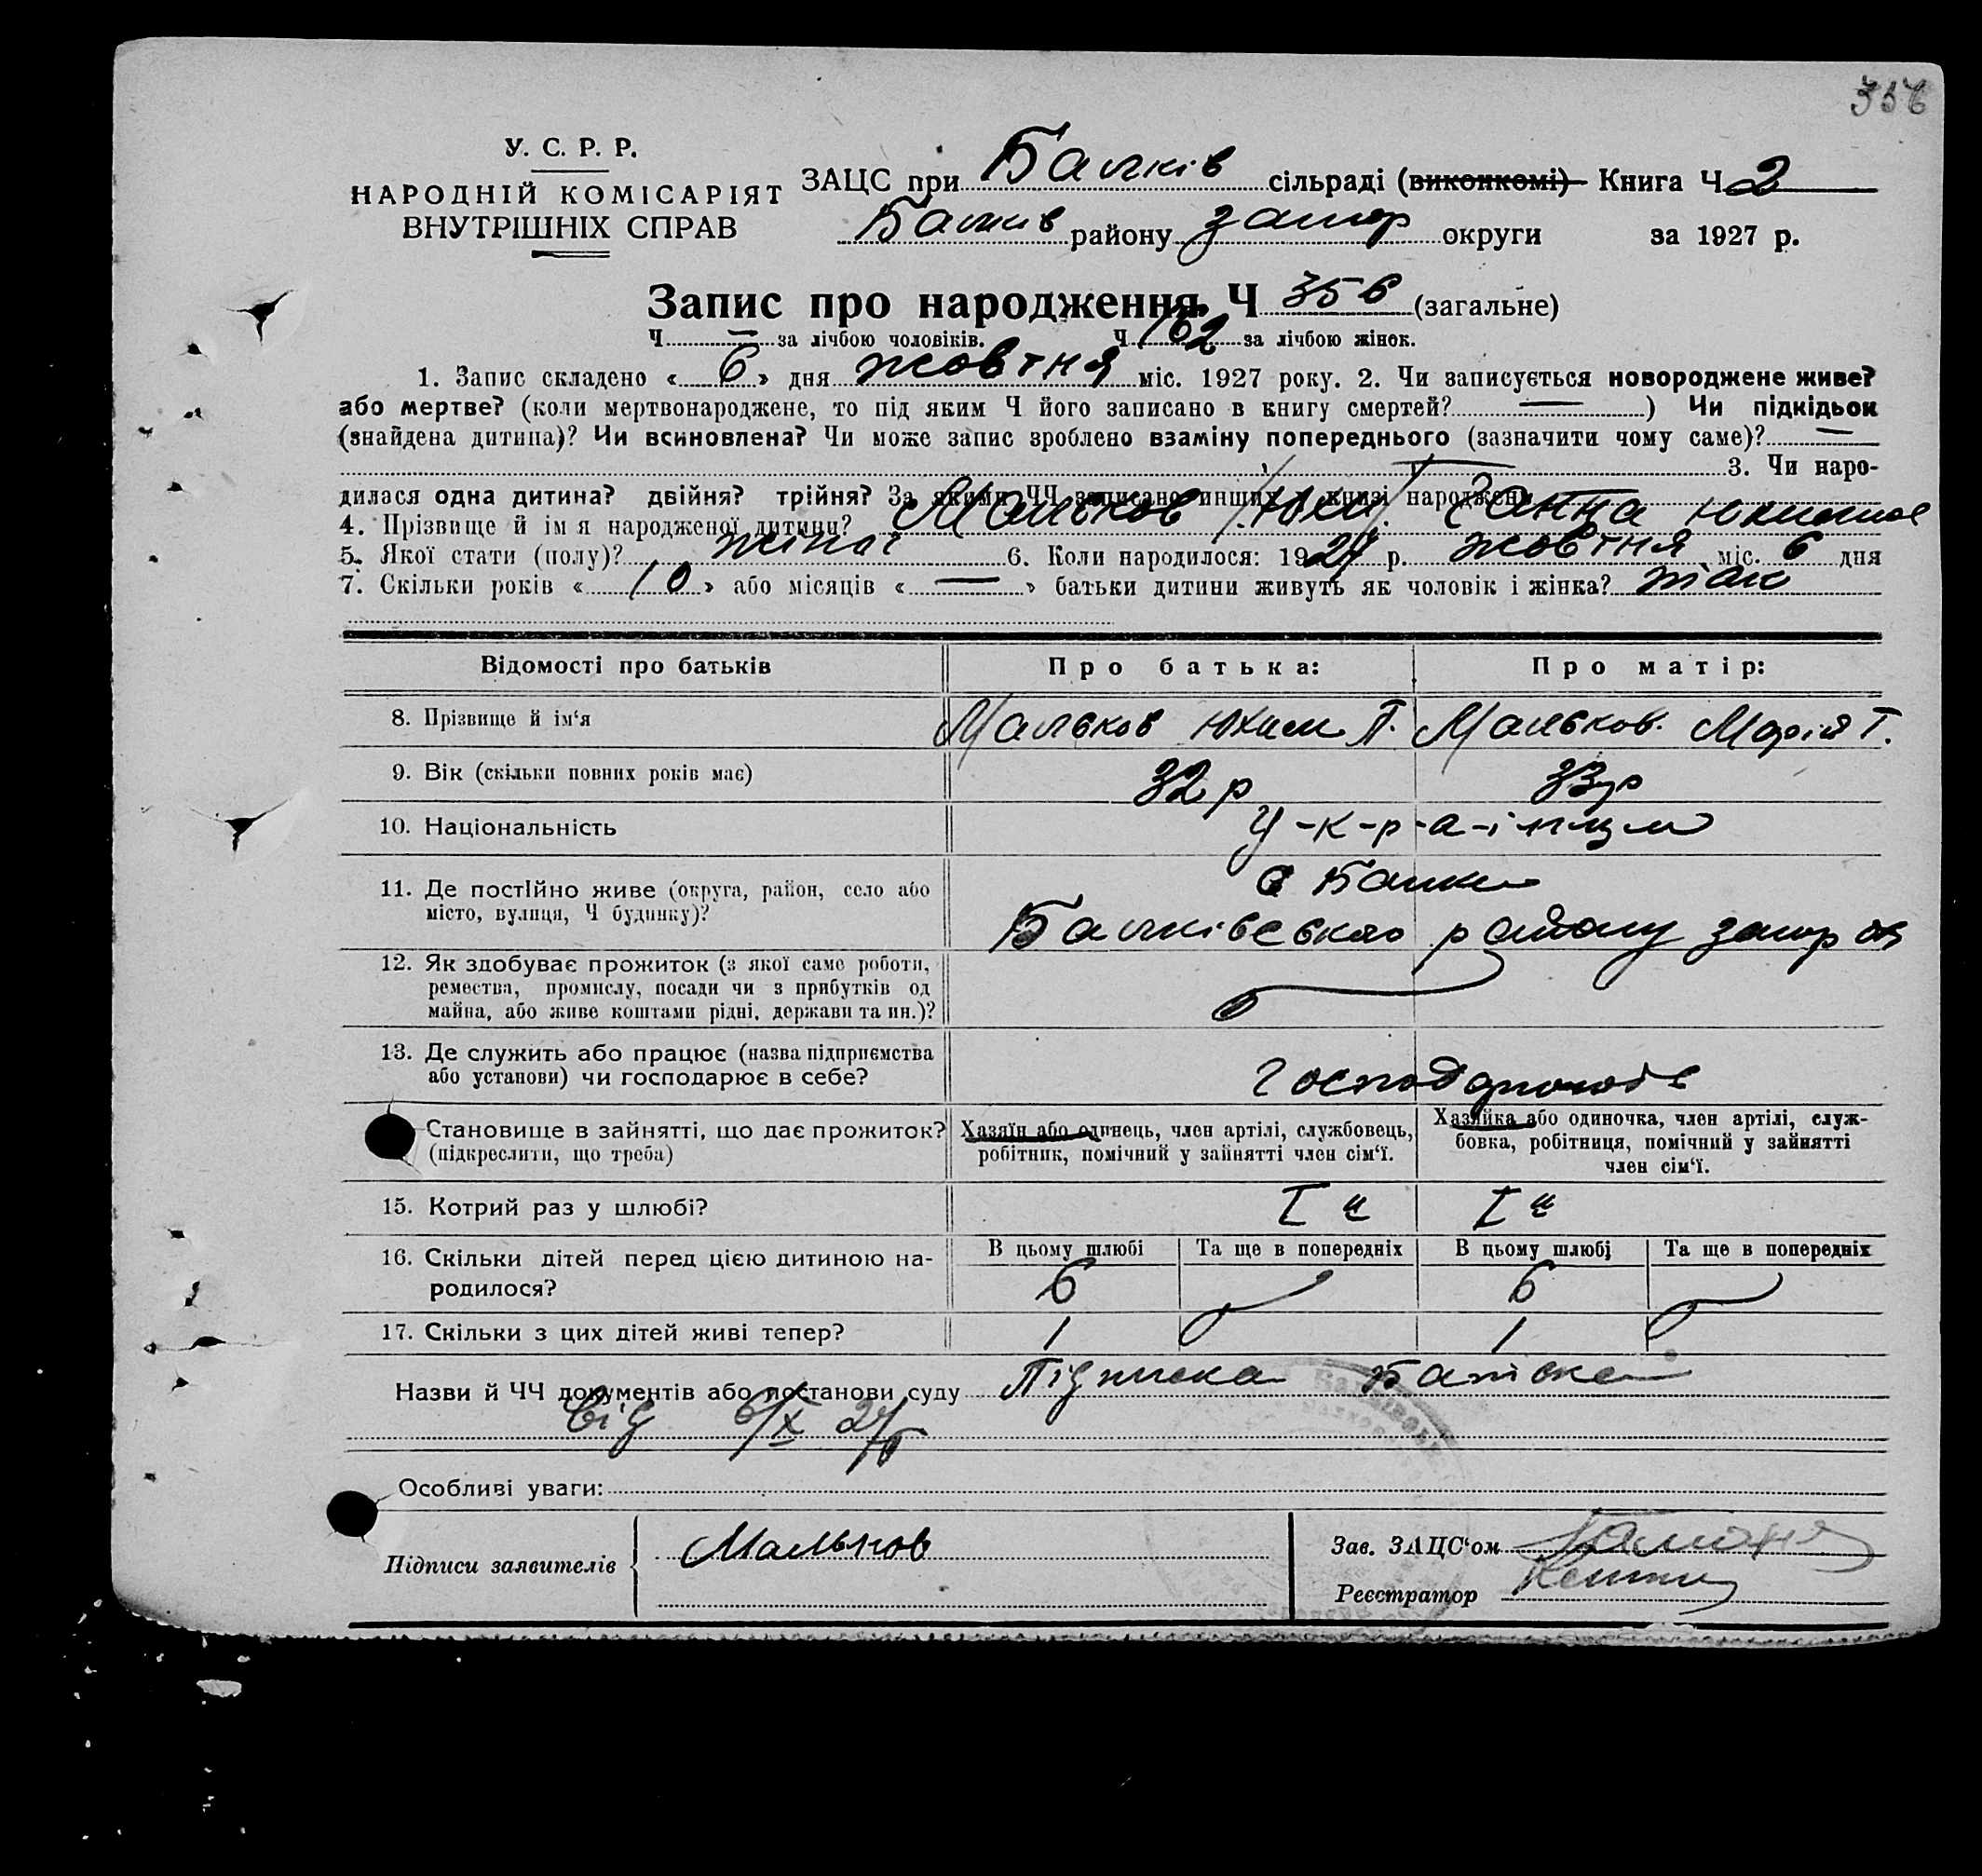 356
У. С. Р. Р.
НАРОДНІЙ КОМІСАРІЯТ
ВНУТРІШНІХ СПРАВ
ЗАЦС при Балків сільраді (виконкомі) Книга Ч 2
Балків району запор округи за 1927 р.
Запис про народження Ч 356 (загальне)
Ч — за лічбою чоловіків. Ч 162 за лічбою жінок.
1. Запис складено « 6 » дня жовтня міс. 1927 року. 2. Чи записується новороджене живе?
або мертве? (коли мертвонароджене, то під яким Ч його записано в книгу смертей? — ) Чи підкідьок
(знайдена дитина)? Чи всиновлена? Чи може запис зроблено взаміну попереднього (зазначити чому саме)? —
3. Чи наро-
дилася одна дитина? двійня? трійня? За якими ЧЧ записано инших в книзі народжень
4. Прізвище й ім я народженої дитини? Мальков
5. Якої стати (полу)? жіноч 6. Коли народилося: 1927 р. жовтня міс. 6 дня
7. Скільки років « 10 » або місяців « — » батьки дитини живуть як чоловік і жінка? так
Відомості про батьків Про батька: Про матір:
8. Прізвище й ім‘я Мальков Юхим П. Мальков. Марія Г.
9. Вік (скільки повних років має) 32 р 33 р
10. Національність У-к-р-а-інци
11. Де постійно живе (округа, район, село або
місто, вулиця, Ч будинку)?
с Балки
Балківського району запор ок
12. Як здобуває прожиток (з якої саме роботи,
ремества, промислу, посади чи з прибутків од
майна, або живе коштами рідні, держави та ин.)?
13. Де служить або працює (назва підприємства
або установи) чи господарює в себе?
господарюють
Становище в зайнятті, що дає прожиток?
(підкреслити, що треба)
Хазяїн або одинець, член артілі, службовець,
робітник, помічний у зайнятті член сім‘ї.
Хазяйка або одиночка, член артілі, служ-
бовка, робітниця, помічний у зайнятті
член сім‘ї.
15. Котрий раз у шлюбі? I й I й
16. Скільки дітей перед цією дитиною на-
родилося?
В цьому шлюбі Та ще в попередніх В цьому шлюбі Та ще в попередніх
6 6
17. Скільки з цих дітей живі тепер? 1 1
Назви й ЧЧ документів або постанови суду Підписка Батька
від 6/X 27
Особливі уваги:
Підписи заявителів Мальков
Зав. ЗАЦС‘ом
Реєстратор